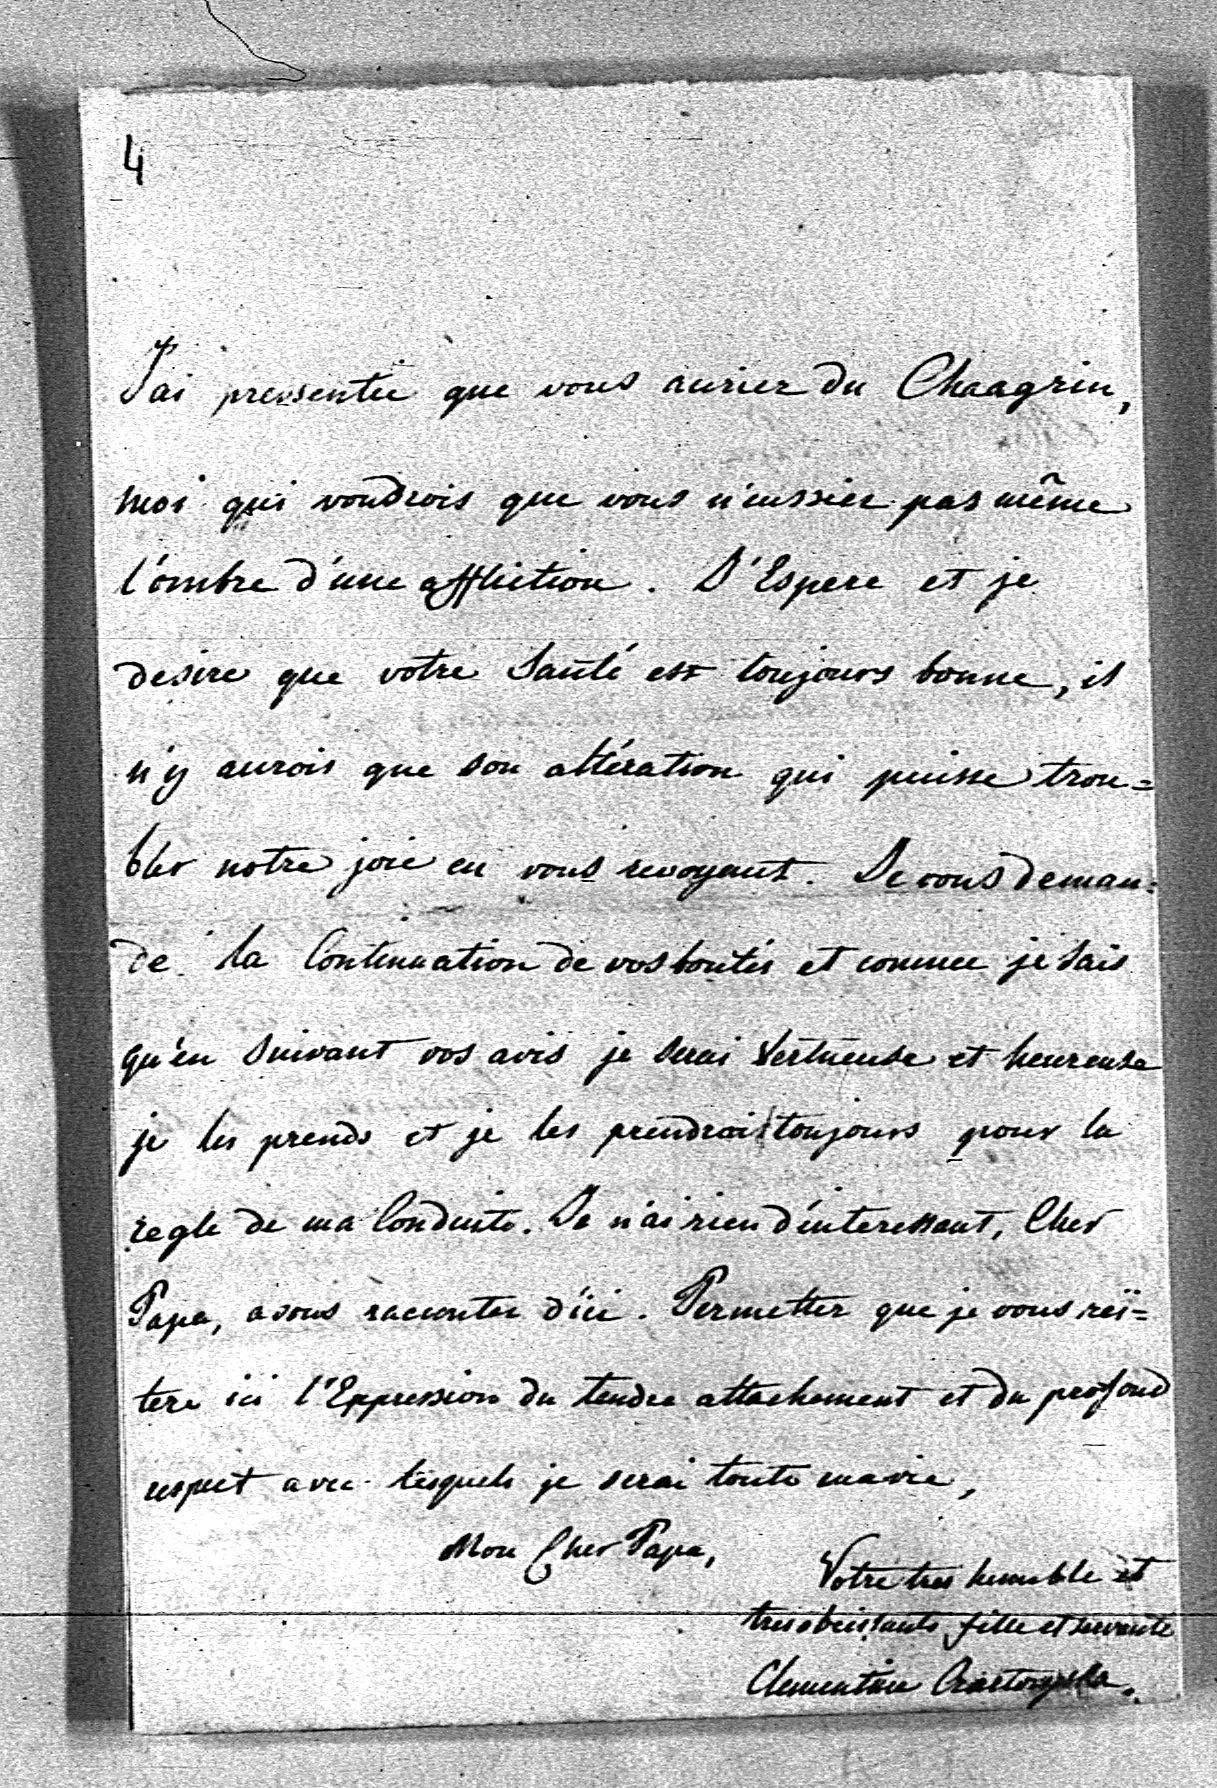 4
J'ai pressentie que vous auriez du Chaagrin,
moi qui voudrois que vous n'eussiez pas même
l'ombre d'une affliction. J'Espere et je
desire que votre Santé est toujours bonne, il
n'y aurois que son altération qui puisse trou=
bler notre joie en vous revoyant. Je vous deman=
de la Continuation de vos bontés et comme je sais
qu'en suivant vos avis je serai Vertueuse et heureuse
je les prends et je les prendrai toujours pour la
regle de ma Conduite. Je n'ai rien d'interessant, Cher
Papa, a vous raconter d'ici. Permettez que je vous réï=
tere ici l'Expression du tendre attachement et du profond
respect avec lesquels je serai toute ma vie,
Mon Cher Papa,
Votre tres humble et
tres obeissante fille et servante
Clementine Czartoryska.